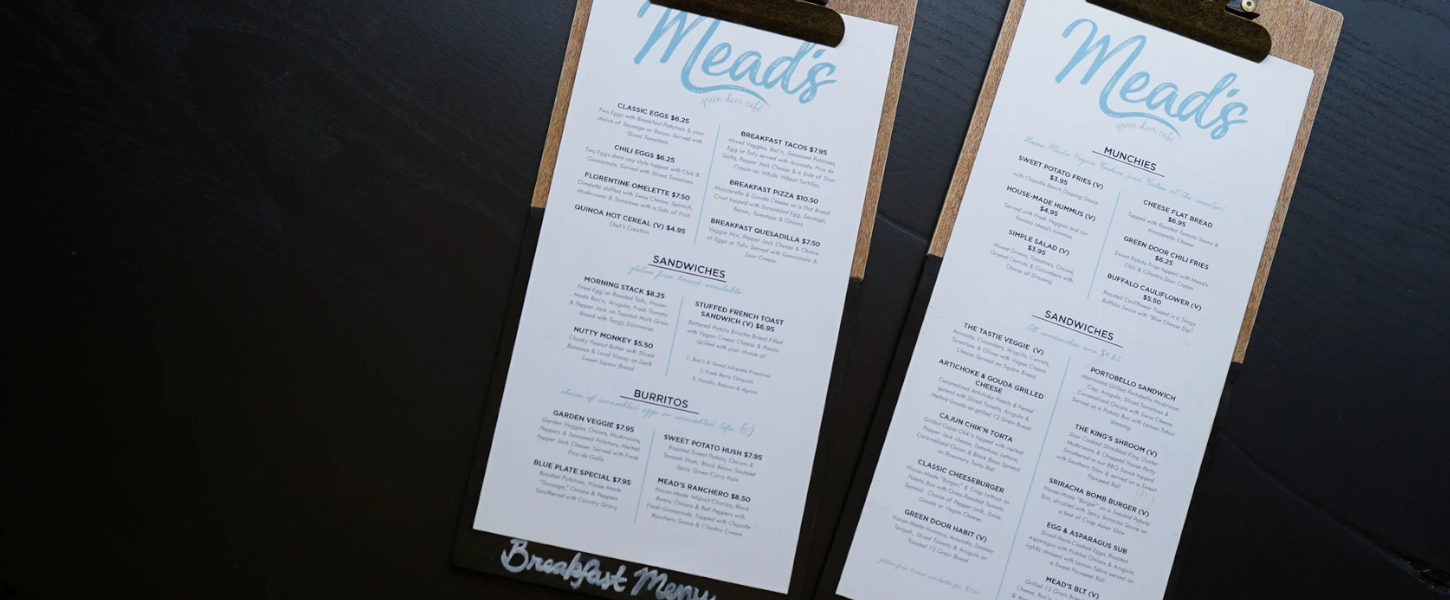 Mead's
green door café
CLASSIC EGGS $6.25
Two Eggs with Breakfast Potatoes & your
choice of Sausage or Bacon. Served with
Sliced Tomatoes.
CHILI EGGS $6.25
Two Eggs done any style topped with Chili &
Guacamole. Served with Sliced Tomatoes
FLORENTINE OMELETTE $7.50
Omelette stuffed with Swiss Cheese, Spinach,
Mushrooms & Tomatoes with a Side of Fruit
QUINOA HOT CEREAL (V) $4.95
Chef's Creation
BREAKFAST TACOS $7.95
Mixed Veggies, Bac'n, Seasoned Potatoes,
Egg or Tofu served with Avocado, Pico de
Gallo, Pepper Jack Cheese & a Side of Sour
Cream on Whole Wheat Tortillas.
BREAKFAST PIZZA $10.50
Mozzarella & Gouda Cheese on a Flat Bread
Crust topped with Scrambled Egg, Sausage,
Bacon, Tomatoes & Onions.
BREAKFAST QUESADILLA $7.50
Veggie Mix, Pepper Jack Cheese & Choice
of Eggs or Tofu. Served with Guacamole &
Sour Cream
SANDWICHES
gluten free bread available
MORNING STACK $8.25
Fried Egg or Roasted Tofu, House-
Made Bac'n, Arugula, Fresh Tomato,
& Pepper Jack on Toasted Multi Grain
Bread with Tangy
NUTTY MONKEY $5.50
Chunky Peanut Butter with Sliced
Bananas & Local Honey on Dark
Sweet Squaw Bread
STUFFED FRENCH TOAST
SANDWICH (V) $6.95
Battered Potato Brioche Bread Filled
with Vegan Cream Cheese &
Grilled with your choice of:
1. Bac'n & Sweet Jalapeño Preserves
2. Fresh Berry Compote
3. Nutella, Banana & Agave
BURRITOS
choice of scrambled eggs or scrambled tofu (V)
GARDEN VEGGIE $7.95
Garden Veggies, Onions, Mushrooms,
Peppers & Seasoned Potatoes, Melted
Pepper Jack Cheese. Served with Fresh
Pico de Gallo
BLUE PLATE SPECIAL $7.95
Roasted Potatoes, House-Made
"Sausage," Onions & Peppers
Smothered with Country Gravy
SWEET POTATO HUSH $7.95
Roasted Sweet Potato, Onions &
Tempeh Hash, Black Beans, Sautéed
Spicy Green Curry Kale
MEAD'S RANCHERO $8.50
House-Made Walnut Chorizo, Black
Beans, Onions & Bell Peppers with
Fresh Guacamole. Topped with Chipotle
Ranchero Sauce & Cilantro Cream
Breakfast Menu
Mead's
green door café
House-Made Vegan Cookies and Cakes at the counter!
MUNCHIES
SWEET POTATO FRIES (V)
$3.95
with Chipotle Ranch Dipping Sauce
HOUSE-MADE HUMMUS (V)
$4.95
Served with Fresh Veggies and our
famous Mead's hummus
SIMPLE SALAD (V)
$3.95
Mixed Greens, Tomatoes, Onions,
Grated Carrots & Cucumbers with
Choice of Dressing
CHEESE FLAT BREAD
$6.95
Topped with Roasted Tomato Sauce &
Mozzarella Cheese
GREEN DOOR CHILI FRIES
$6.25
Sweet Potato Fries topped with Mead's
Chili & Cilantro Sour Cream
BUFFALO CAULIFLOWER (V)
$5.50
Roasted Cauliflower Tossed in a Tangy
Buffalo Sauce with "Blue Cheese Dip"
SANDWICHES
All sandwiches are
THE TASTIE VEGGIE (V)
Avocado, Cucumbers, Arugula, Carrots,
Tomatoes & Olives with Vegan Cream
Cheese Spread on Squaw Bread
ARTICHOKE & GOUDA GRILLED
CHEESE
Caramelized Artichoke Hearts & Fennel
spread with Sliced Tomato, Arugula &
Melted Gouda on grilled 12 Grain Bread
CAJUN CHIK'N TORTA
Grilled Cajun Chik'n topped with melted
Pepper Jack cheese, Tomatoes, Lettuce,
Caramelized Onion & Black Bean Spread
on Rosemary Torta Roll
CLASSIC CHEESEBURGER
House-Made "Burger" & Crisp Lettuce on
Potato Bun with Oven-Roasted Tomato
Spread. Choice of Pepper Jack, Swiss,
Gouda or Vegan Cheese.
GREEN DOOR HABIT (V)
House-Made Hummus, Avocado, Smokey
Tempeh, Sliced Tomato & Arugula on
Toasted 12 Grain Bread
gluten free bread available for
PORTOBELLO SANDWICH
Marinated Grilled Portobello Mushroom
Cap, Arugula, Sliced Tomatoes &
Caramelized Onions with Swiss Cheese.
Served on a Potato Bun with Lemon-Tahini
dressing
THE KING'S SHROOM (V)
Slow Cooked Shredded King Oyster
Mushrooms & Chopped House Patty
Smothered in our BBQ Sauce topped
with Southern Slaw & served on a Sweet
Flaxseed Roll
SRIRACHA BOMB BURGER (V)
House-Made "Burger" on a Toasted Potato
Bun, drizzled with Spicy Sriracha Sauce on
a bed of Crisp Asian Slaw
EGG & ASPARAGUS SUB
Sliced Hard Cooked Eggs, Roasted
Asparagus with Pickled Onions & Arugula,
lightly draped with Lemon-Tahini served on
a Sweet Flaxseed Roll
MEAD'S BLT (V)
Grilled 12 Grain Bread